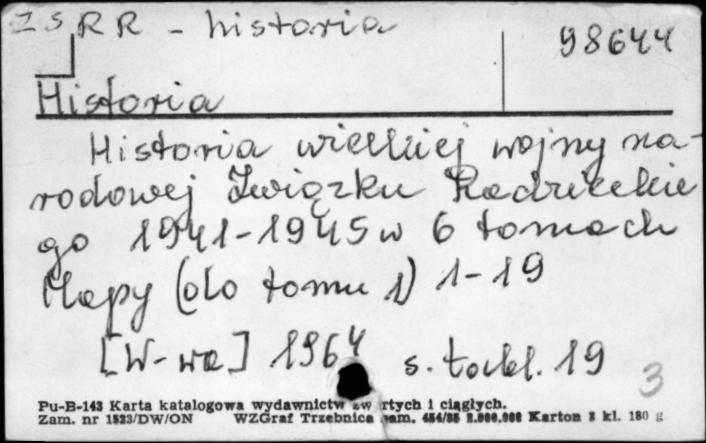 ZSRR - historia
98644
Historia
Historia wielkiej wojny na-
rodowej Związku Radzieckie
go 1941-1945 w 6 tomach
Mapy (do tomu 1) 1-19
[W-wa] 1964 s. tabl. 19
3
Pu-B-143 Karta katalogowa wydawnictw zwartych i ciągłych.
Zam. nr 1523/DW/ON WZGraf Trzebnica zam. 454/85 2.000.000 Karton 3 kl. 180 g